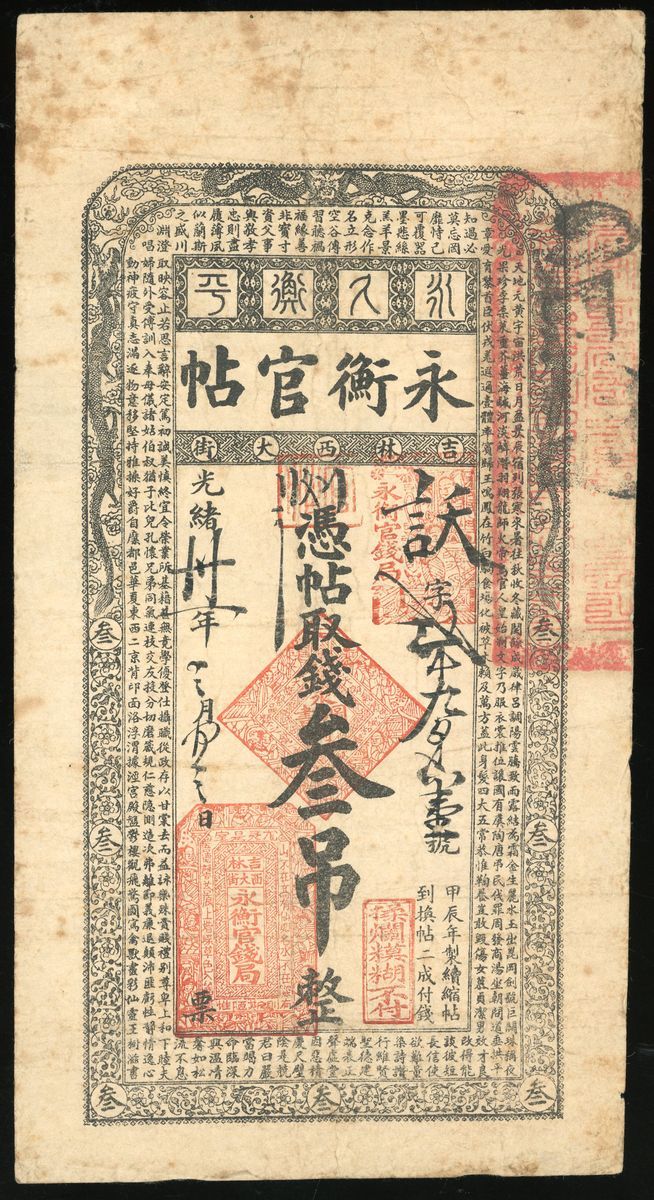 永久衡平
永衡官帖
吉林西大街
字
號
甲辰年製續縮帖
到換帖二成付錢
憑帖取錢叁吊整
光緒卅年
日
票
永衡官錢局
吉林
西大街
永衡官錢局
染爛模糊不付
天地元黃宇宙洪荒日月盈昃辰宿列張寒來暑往秋收冬藏閏餘成歲律呂調陽雲騰致雨露結為霜金生麗水玉出崑岡劍號巨闕珠稱夜
光果珍李柰菜重芥薑海鹹河淡鱗潛羽翔龍師火帝鳥官人皇始制文字乃服衣裳推位讓國有虞陶唐弔民伐罪周發商湯坐朝問道垂拱平
章愛育黎首臣伏戎羌遐邇壹體率賓歸王鳴鳳在竹白駒食場化被草木賴及萬方蓋此身髮四大五常恭惟鞠養豈敢毀傷女慕貞潔男效才良
知過必
改得能
莫忘罔
談彼短
靡恃己
長信使
可覆器
欲難量
墨悲絲
染詩讚
羔羊景
行維賢
克念作
聖德建
名立形
端表正
空谷傳
聲虛堂
習聽禍
因惡積
福緣善
慶尺璧
非寶寸
陰是競
資父事
君曰嚴
與敬孝
當竭力
忠則盡
命臨深
履薄夙
興溫凊
似蘭斯
馨如松
之盛川
流不息
淵澄取映容止若思言辭安定篤初誠美慎終宜令榮業所基籍甚無竟學優登仕攝職從政存以甘棠去而益詠樂殊貴賤禮別尊卑上和下睦夫
唱婦隨外受傅訓入奉母儀諸姑伯叔猶子比兒孔懷兄弟同氣連枝交友投分切磨箴規仁慈隱惻造次弗離節義廉退顛沛匪虧性靜情逸心
動神疲守真志滿逐物意移堅持雅操好爵自縻都邑華夏東西二京背邙面洛浮渭據涇宮殿盤鬱樓觀飛驚圖寫禽獸畫彩仙靈
叁
叁
叁
叁
叁
叁
叁